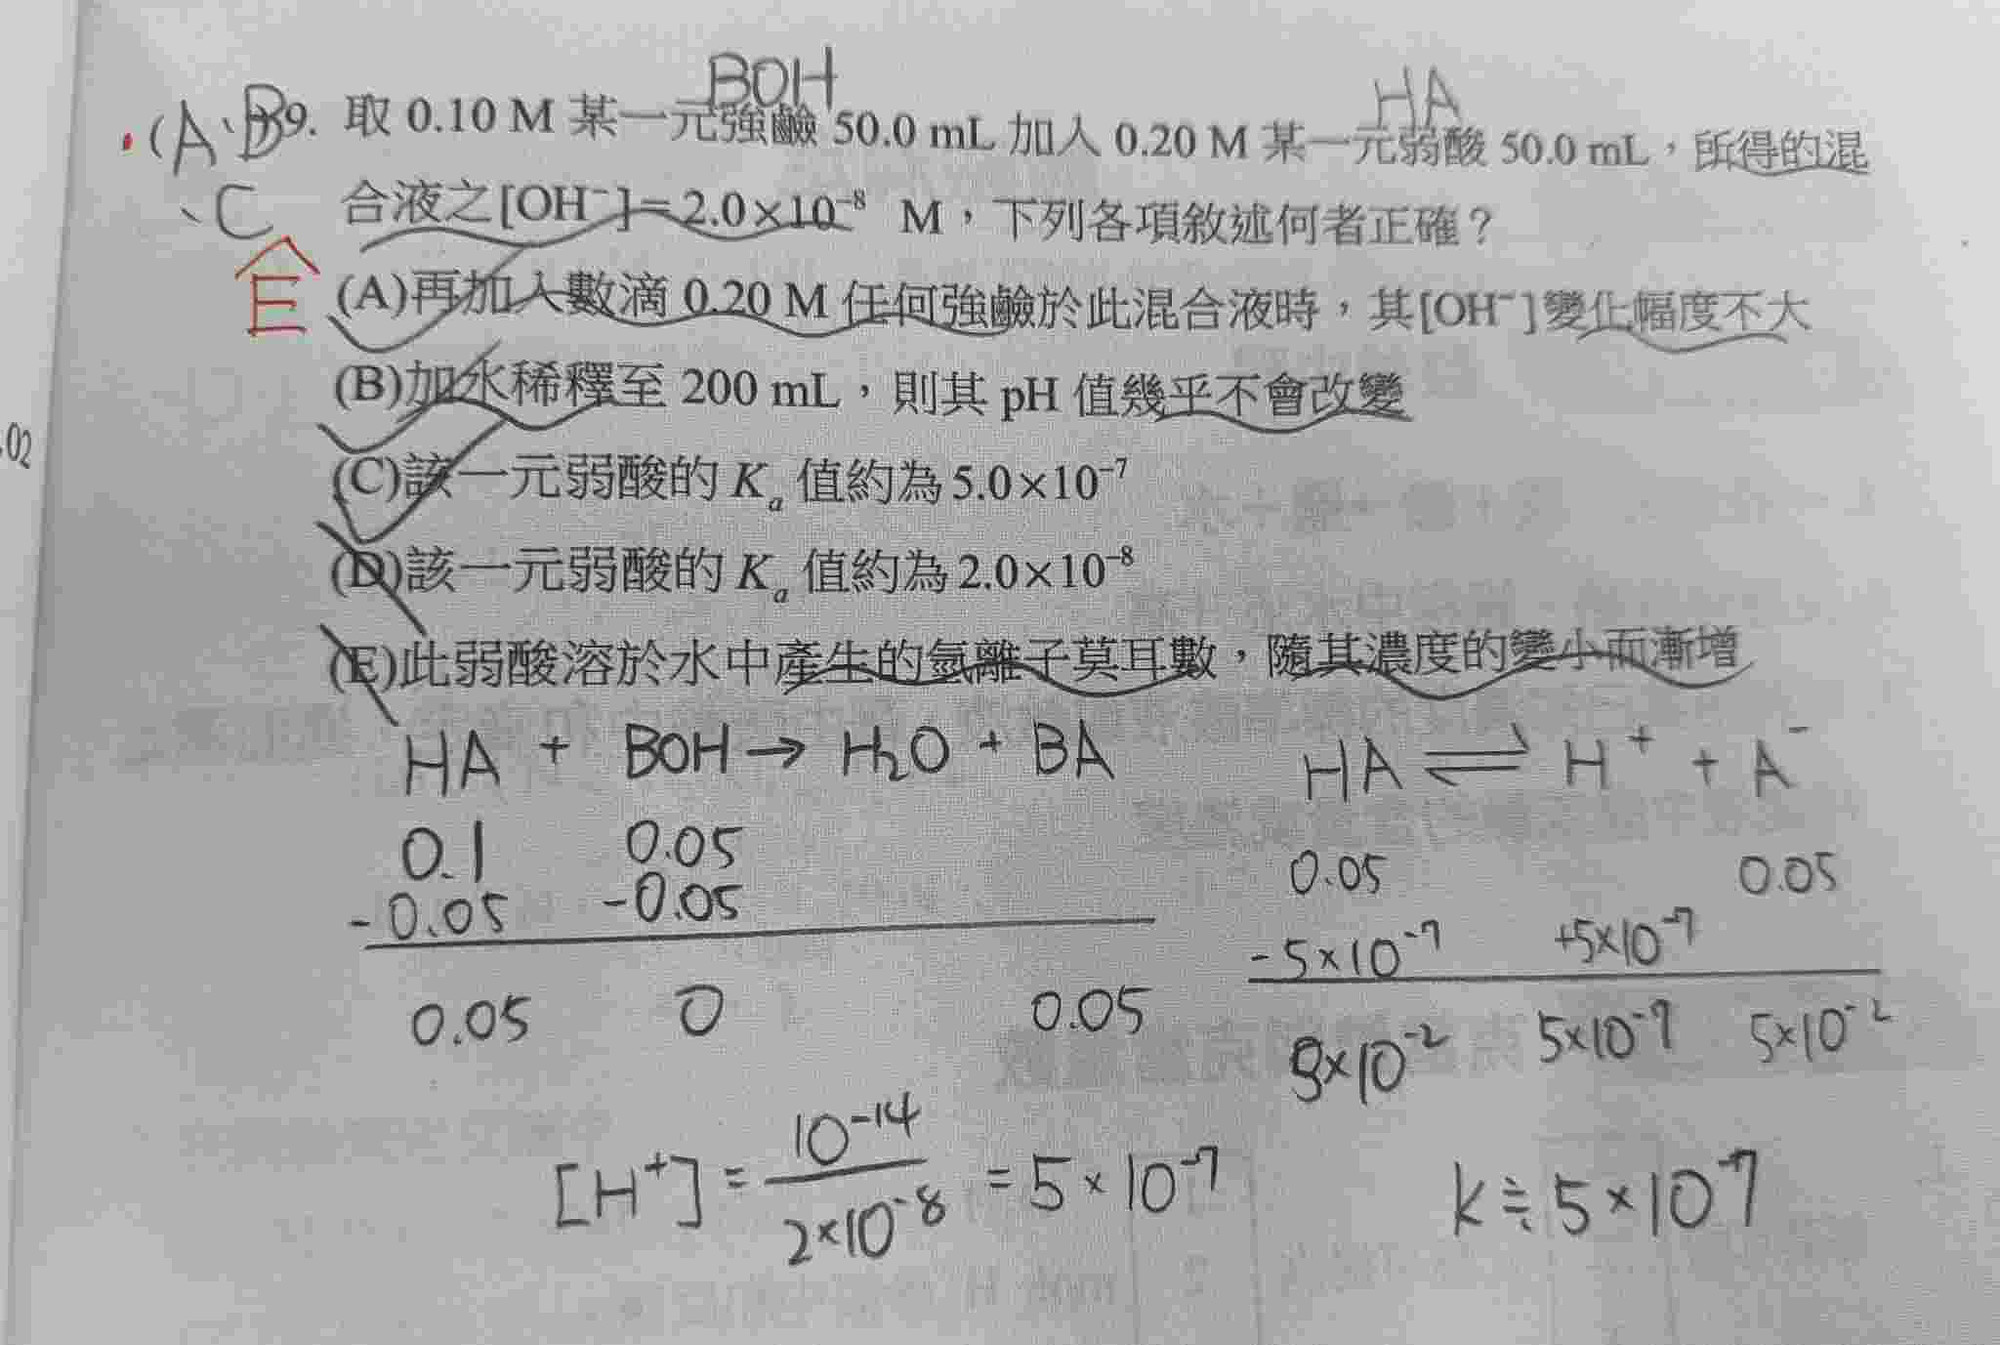 BOH
HA
(A、B
9. 取 0.10 M 某一元強鹼 50.0 mL 加入 0.20 M 某一元弱酸 50.0 mL，所得的混
、C
合液之[OH⁻]=2.0×10⁻⁸ M，下列各項敘述何者正確？
E
(A)再加入數滴 0.20 M 任何強鹼於此混合液時，其[OH⁻]變化幅度不大
(B)加水稀釋至 200 mL，則其 pH 值幾乎不會改變
02
(C)該一元弱酸的 Kₐ 值約為 5.0×10⁻⁷
(D)該一元弱酸的 Kₐ 值約為 2.0×10⁻⁸
(E)此弱酸溶於水中產生的氫離子莫耳數，隨其濃度的變小而漸增
HA + BOH → H₂O + BA
HA ⇌ H⁺ + A⁻
0.1 0.05
0.05 0.05
-0.05 -0.05
-5×10⁻⁷ +5×10⁻⁷
0.05 0 0.05
5×10⁻² 5×10⁻⁷ 5×10⁻²
[H⁺] = 10⁻¹⁴ / 2×10⁻⁸ = 5×10⁻⁷
k≒5×10⁻⁷